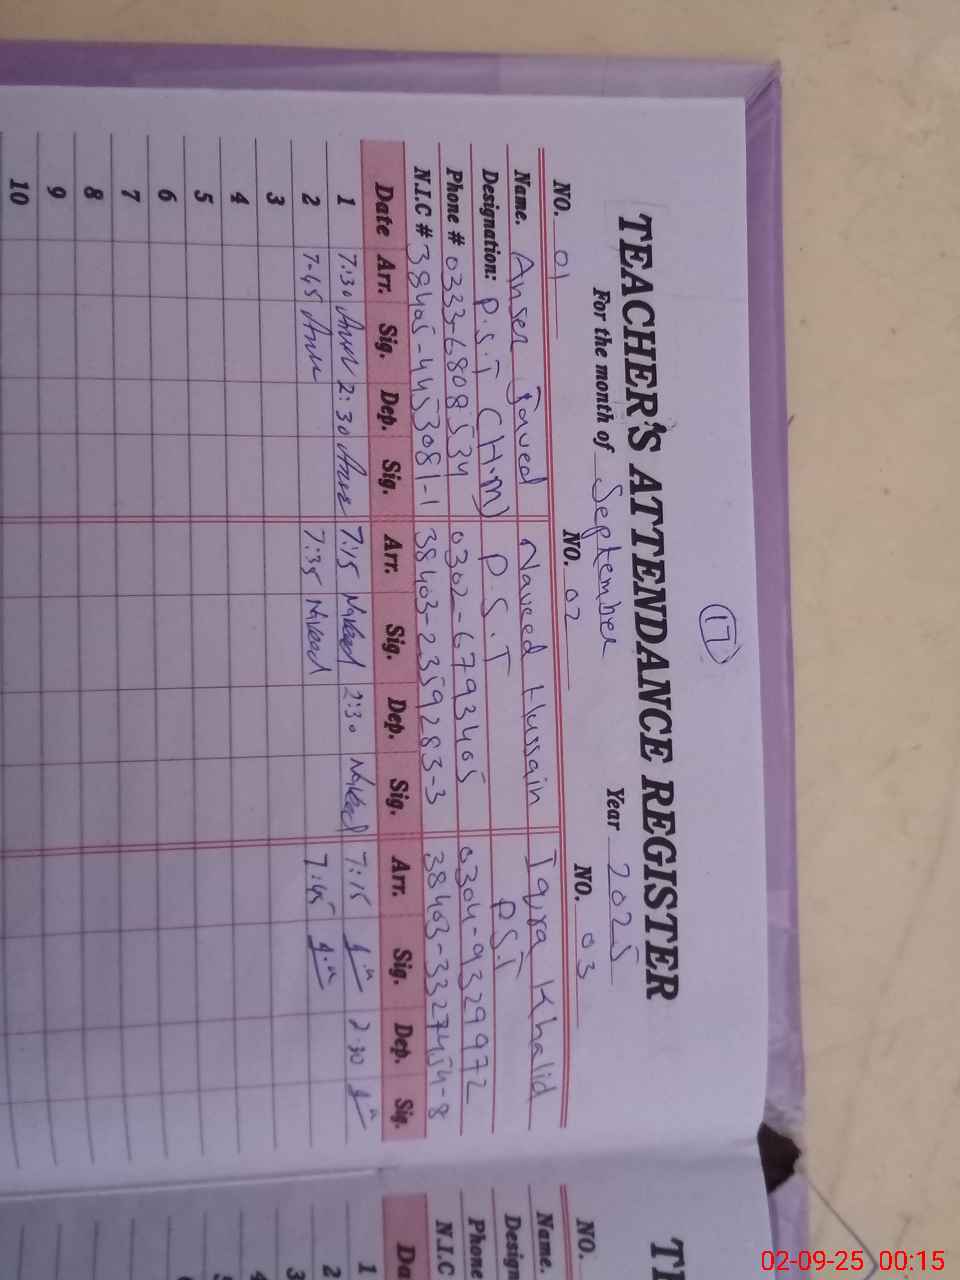 17
TEACHER'S ATTENDANCE REGISTER
For the month of September Year 2025
NO. 01 NO. 02 NO. 03
Name. Anser Javed Naveed Hussain Iqra Khalid
Designation: P.S.T (H.M) P.S.T PST
Phone # 0333-6808534 0302-6793405 0304-9329972
N.I.C # 38405-4453081-1 38403-2359283-3 38403-3327454-8
Date Arr. Sig. Dep. Sig. Arr. Sig. Dep. Sig. Arr. Sig. Dep. Sig.
1 7:30 2:30 7:15 Naveed 2:30 Naveed 7:15 2:30
2 7-45 7:35 Naveed 7:45
3
4
5
6
7
8
9
10
TE
NO.
Name.
Design
Phone
N.I.C
Da
1
2
3
4
02-09-25 00:15